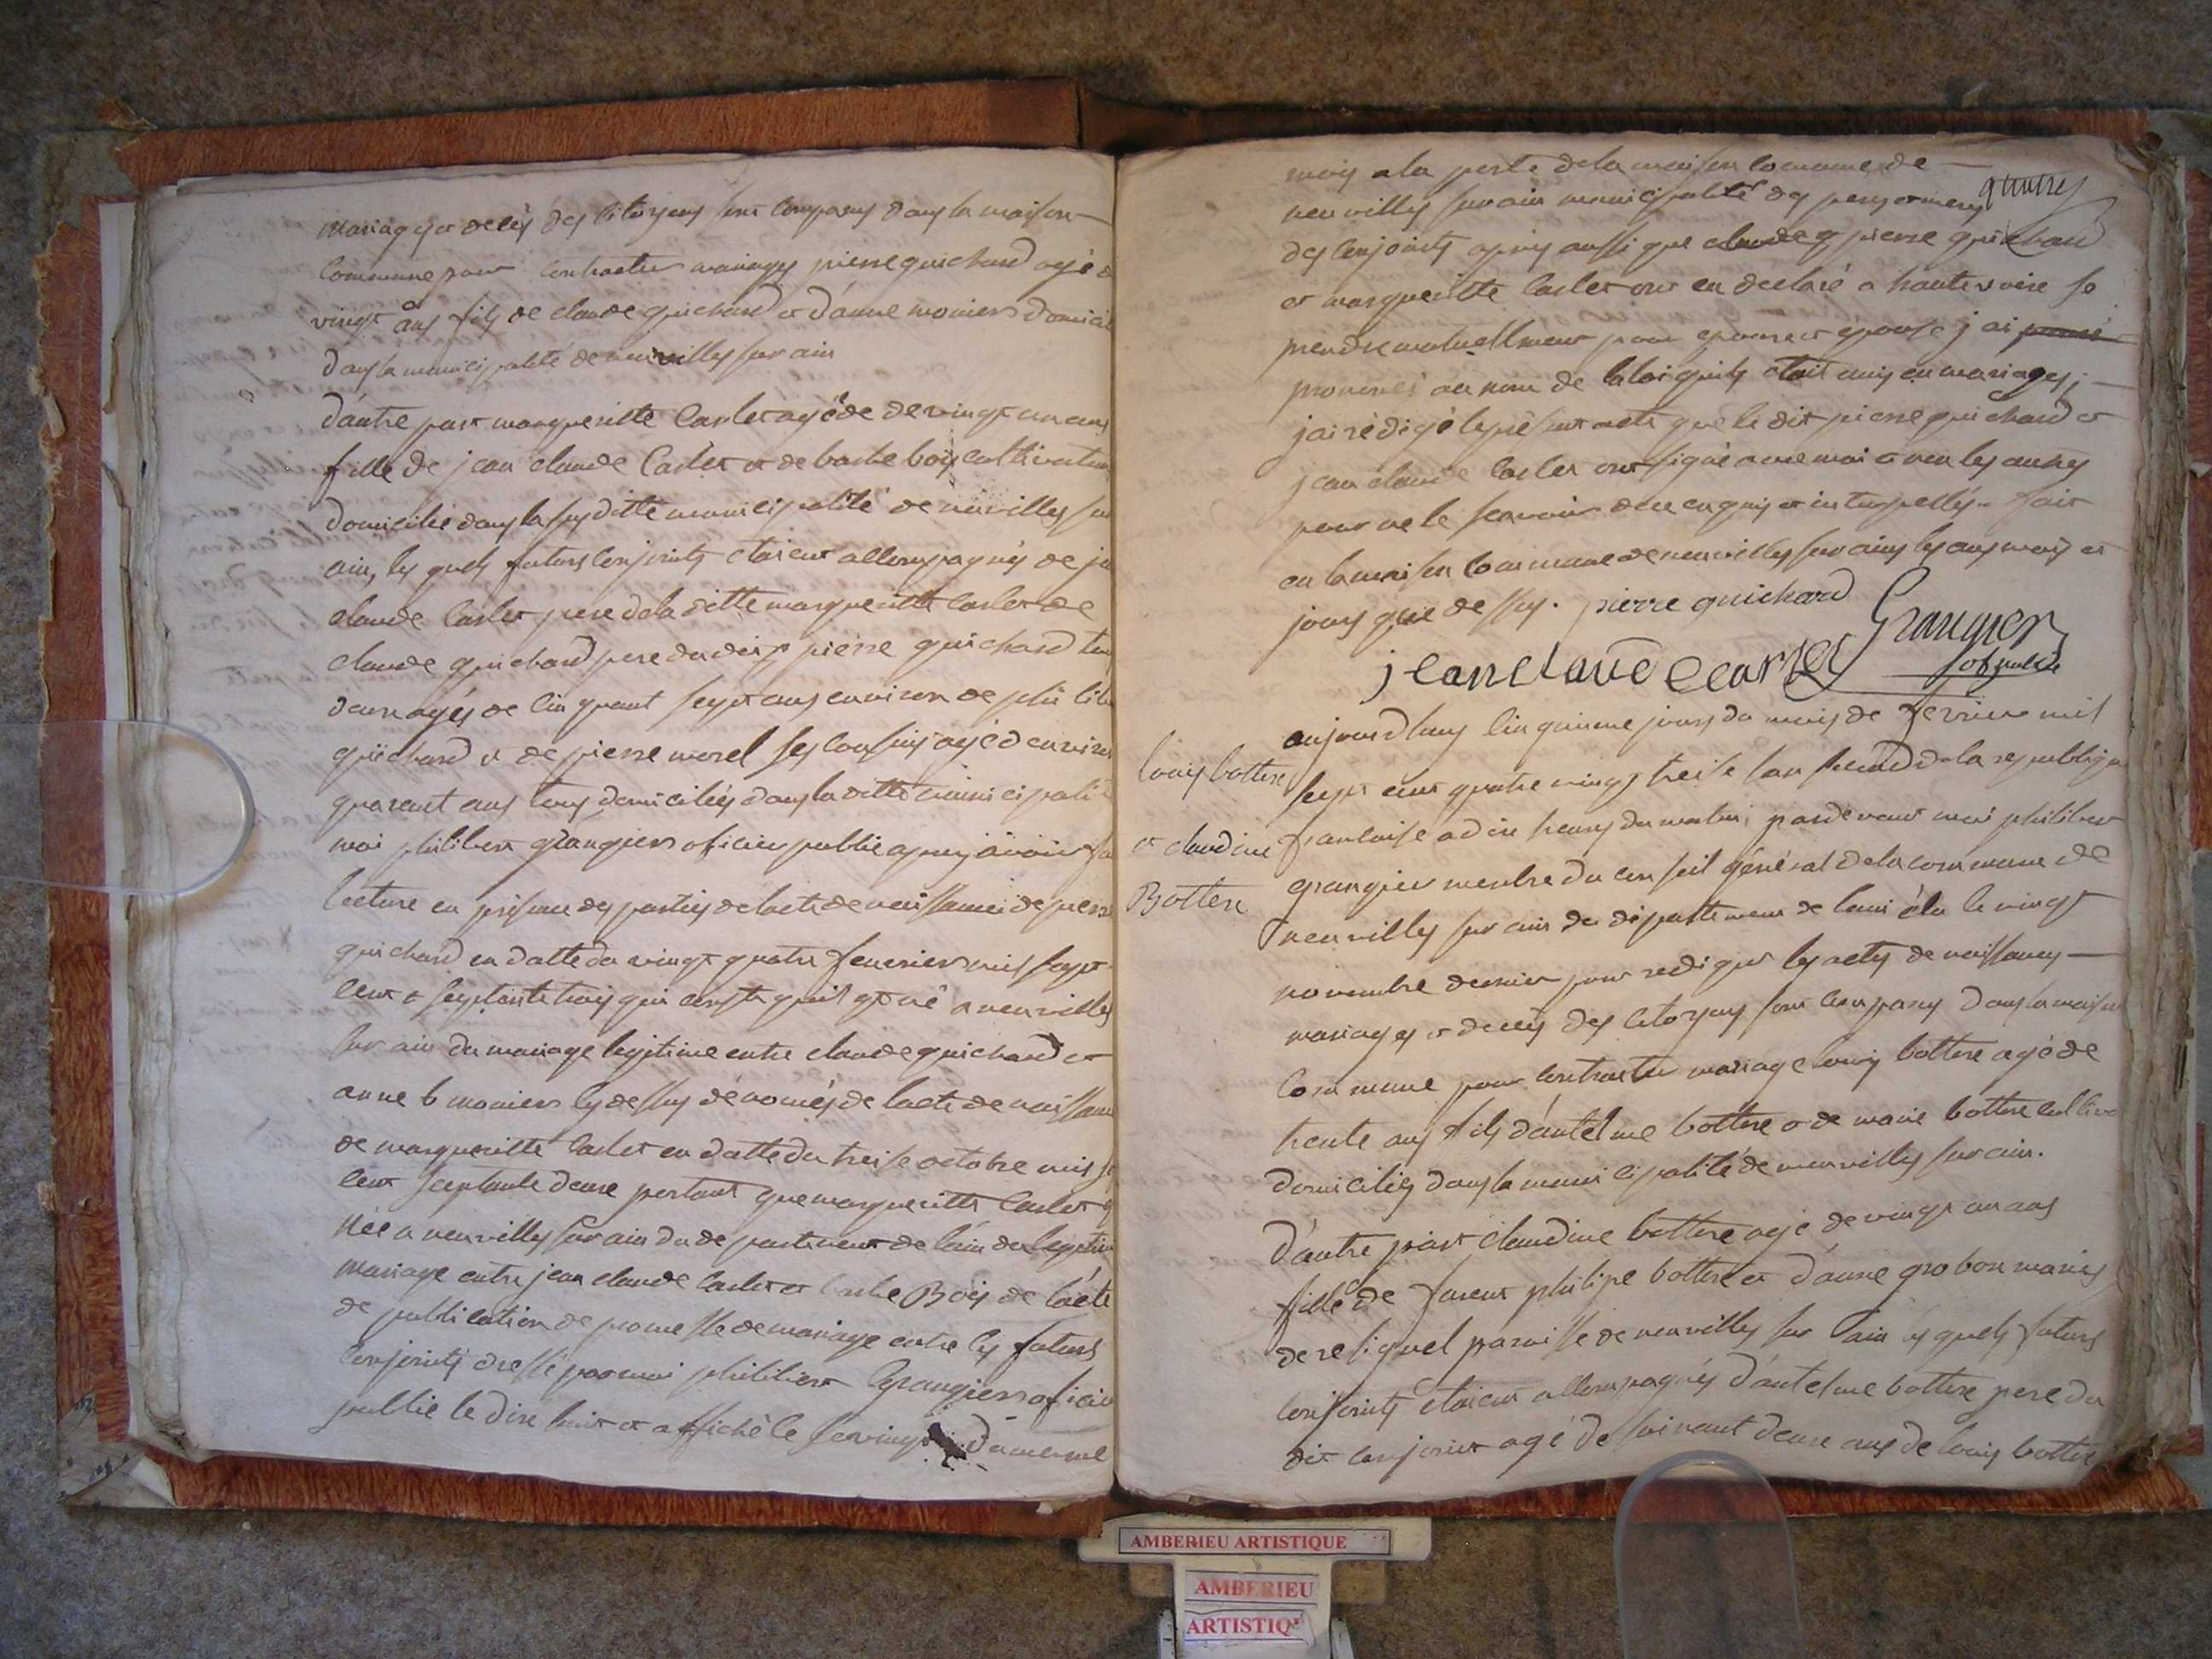 mariages et decès des citoyens sont comparus dans la maison
commune pour contracter mariages pierre guichard agé d
vingt ans fils de claude guichard et d'anne moniers domicil
dans la municipalité de neuvilles sur ain
d'autre part margueritte Carlet agéé de de vingt un ans
fille de jean claude Carlet et de barbe boÿs cultivateurs
domicilié dans la susditte municipalité de neuvilles sur
ain, les quels futurs conjoints etoient allompagnés de je
claude Carlet pere de la ditte margueritte Carlet de
claude guichard pere du dit pierre guichard tous
deux agés de cinquant sept ans environ de phi
guichard et de pierre morel ses cousins agé d'environ
quarent ans tous domiciliés dans la ditte municipali
moi philibert grangiers oficier public apres avoir fa
lecture en présence des parties de lacte de naissance de pierre
guichard en datte du vingt quatre fevrier mil sept
cent et septante trois qui conste quil est né a neuvilles
sur ain du mariage legitime entre claude guichard et
anne b moniers cy dessus dénomés de lacte de naissance
de margueritte Carlet en datte du treise octobre mil se
cent septante deux portant que marguerritte Carlet e
née a neuvilles sur ain du departement de l'ain du legitime
mariage entre jean claude Carlet et barbe Boÿs de lacte
de publication de promesse de mariage entre les futurs
conjoints dressé par moi philibert Grangiers oficier
public le dix huit et affiché le vingt du meme
mois a la porte de la maison comune de
neuvilles sur ain municipalité des peres et meres
des conjoints apres aussi que pierre guichard
et marguerite Carlet ont eu declaré a haute voix se
prendre mutuellement pour epoux et épouse j'ai
prononcé au nom de la loi quils etoit unis en mariages;
jai rédigé le présent acte que le dit pierre guichard et
jean claude Carlet ont signé avec moi et non les autres
pour ne le scavoir de ce enquis et interpellés. fait
en la maison commune de neuvilles sur ain les ans mois et
jours que dessus. pierre guichard
Grangier
jean claude Carlet
of public
aujourdhuy cinquieme jours du mois de fevrier mil
louis bottere
sept cent quatre vingt treise l'an second de la republique
francoise a dix heures du matin; pardevant moi philibert
et claudine
grangier membre du conseil général de la commune de
Bottere
neuvilles sur ain du departement de lain élu le vingt
novembre dernier pour rediger les actes de naissances
mariages et decès des citoyens sont comparus dans la maison
commune pour contracter mariage louis bottere agé de
trente ans fils d'antelme bottere et de marie bottere cultiva
domiciliés dans la municipalité de neuvilles sur ain.
d'autre part claudine bottere agé de vingt un ans
fille de furent philipe bottere et d'anne grobon mariés
de resignel paroisse de neuvilles sur l'ain les quels futurs
conjoints etoient allompagnés d'antelme bottere pere du
dit conjoint agé de soixant deux ans de louis bottere
AMBERIEU ARTISTIQUE
AMBERIEU
ARTISTIQ